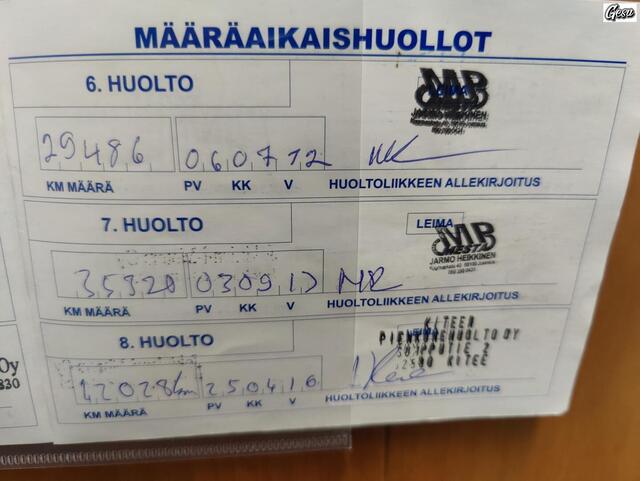 Gesu
MÄÄRÄAIKAISHUOLLOT
6. HUOLTO
LEIMA
JARMO HEIKKINEN
29486 060712
KM MÄÄRÄ PV KK V HUOLTOLIIKKEEN ALLEKIRJOITUS
7. HUOLTO
LEIMA MP
MESTA
JARMO HEIKKINEN
35920 0309
KM MÄÄRÄ PV KK V HUOLTOLIIKKEEN ALLEKIRJOITUS
8. HUOLTO
KITEEN
PIENKONEHUOLTO OY
KITEE
42028km 250416
KM MÄÄRÄ PV KK V HUOLTOLIIKKEEN ALLEKIRJOITUS
Oy
830